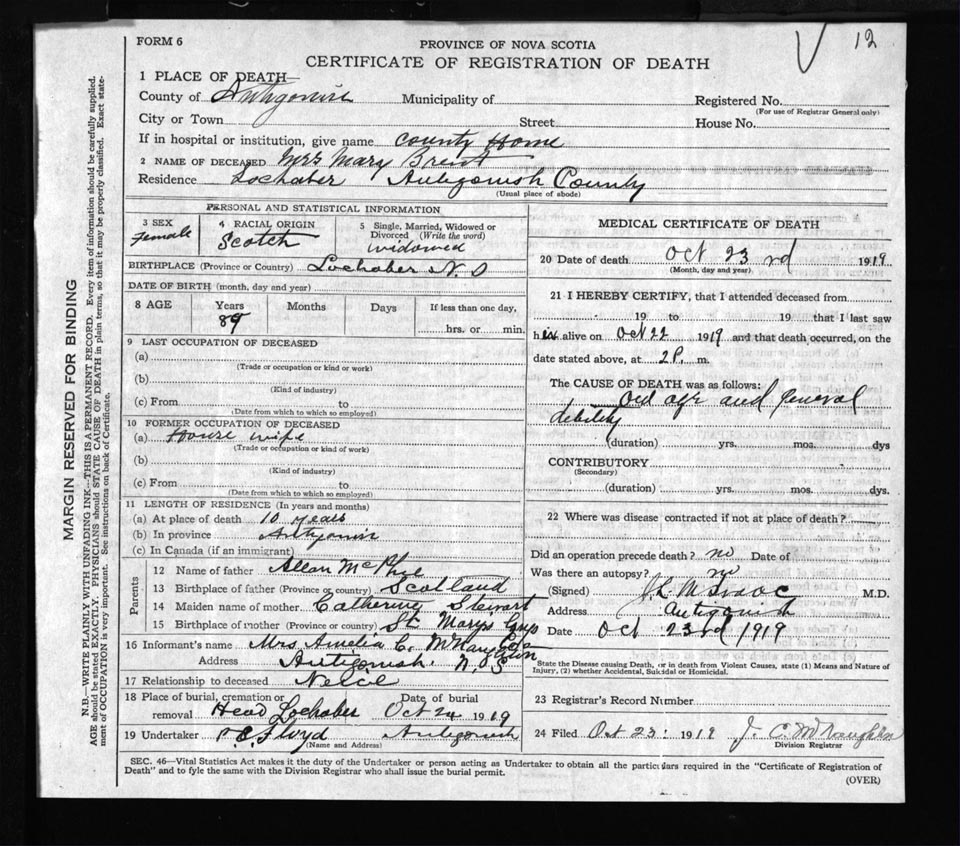 FORM 6
PROVINCE OF NOVA SCOTIA
12
CERTIFICATE OF REGISTRATION OF DEATH
1 PLACE OF DEATH—
County of Antigonish Municipality of Registered No.
(For use of Registrar General only)
City or Town Street House No.
If in hospital or institution, give name County Home
2 NAME OF DECEASED Mrs Mary Brent
Residence Lochaber Antigonish County
(Usual place of abode)
PERSONAL AND STATISTICAL INFORMATION
3 SEX
Female
4 RACIAL ORIGIN
Scotch
5 Single, Married, Widowed or
Divorced (Write the word)
widowed
BIRTHPLACE (Province or Country) Lochaber N.S
DATE OF BIRTH (month, day and year)
8 AGE Years Months Days If less than one day,
89 hrs. or min.
9 LAST OCCUPATION OF DECEASED
(a)
(Trade or occupation or kind or work)
(b)
(Kind of industry)
(c) From to
(Date from which to which so employed)
10 FORMER OCCUPATION OF DECEASED
(a) House wife
(Trade or occupation or kind of work)
(b)
(Kind of industry)
(c) From to
(Date from which to which so employed)
11 LENGTH OF RESIDENCE (In years and months)
(a) At place of death 10 years
(b) In province Antigonish
(c) In Canada (if an immigrant)
Parents
12 Name of father Allan McPhie
13 Birthplace of father (Province or country) Scotland
14 Maiden name of mother Catherine Stewart
15 Birthplace of mother (Province or country) St Marys
16 Informant's name Mrs Amelia C. McNaughton
Address Antigonish N.S
17 Relationship to deceased Neice
18 Place of burial, cremation or Date of burial
removal Head Lochaber Oct 24 1919
19 Undertaker Floyd Antigonish
(Name and Address)
MEDICAL CERTIFICATE OF DEATH
20 Date of death Oct 23 rd 1919
(Month, day and year)
21 I HEREBY CERTIFY, that I attended deceased from
19 to 19 that I last saw
her alive on Oct 22 1919 and that death occurred, on the
date stated above, at 2 P. m.
The CAUSE OF DEATH was as follows:
Old age and general
debility
(duration) yrs. mos. dys
CONTRIBUTORY
(Secondary)
(duration) yrs. mos. dys.
22 Where was disease contracted if not at place of death?
Did an operation precede death? no Date of
Was there an autopsy? no
(Signed) M.D.
Address Antigonish
Date Oct 23rd 1919
State the Disease causing Death, or in death from Violent Causes, state (1) Means and Nature of
Injury, (2) whether Accidental, Suicidal or Homicidal.
23 Registrar's Record Number
24 Filed Oct 23 1919 J. C. McNaughton
Division Registrar
SEC. 46—Vital Statistics Act makes it the duty of the Undertaker or person acting as Undertaker to obtain all the particulars required in the "Certificate of Registration of
Death" and to fyle the same with the Division Registrar who shall issue the burial permit.
(OVER)
MARGIN RESERVED FOR BINDING
N.B.—WRITE PLAINLY WITH UNFADING INK—THIS IS A PERMANENT RECORD. Every item of information should be carefully supplied.
AGE should be stated EXACTLY. PHYSICIANS should STATE CAUSE OF DEATH in plain terms, so that it may be properly classified. Exact state-
ment of OCCUPATION is very important. See instructions on back of Certificate.